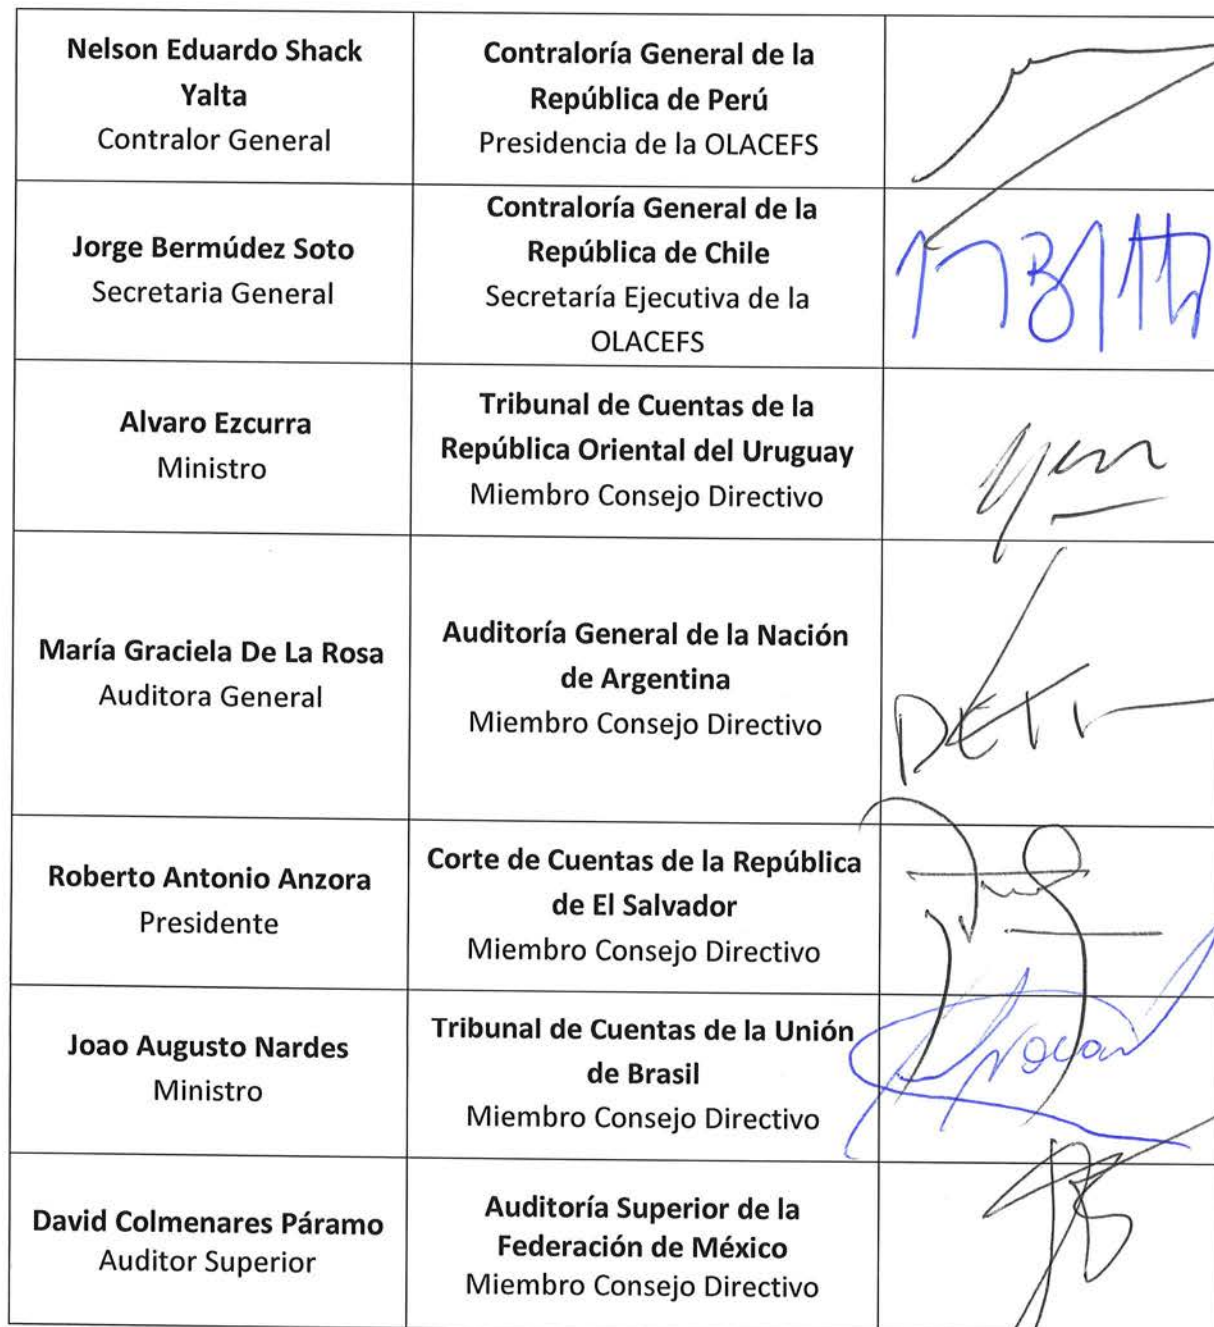 Nelson Eduardo Shack
Yalta
Contralor General
Contraloría General de la
República de Perú
Presidencia de la OLACEFS
Jorge Bermúdez Soto
Secretaria General
Contraloría General de la
República de Chile
Secretaría Ejecutiva de la
OLACEFS
Alvaro Ezcurra
Ministro
Tribunal de Cuentas de la
República Oriental del Uruguay
Miembro Consejo Directivo
María Graciela De La Rosa
Auditora General
Auditoría General de la Nación
de Argentina
Miembro Consejo Directivo
Roberto Antonio Anzora
Presidente
Corte de Cuentas de la República
de El Salvador
Miembro Consejo Directivo
Joao Augusto Nardes
Ministro
Tribunal de Cuentas de la Unión
de Brasil
Miembro Consejo Directivo
David Colmenares Páramo
Auditor Superior
Auditoría Superior de la
Federación de México
Miembro Consejo Directivo